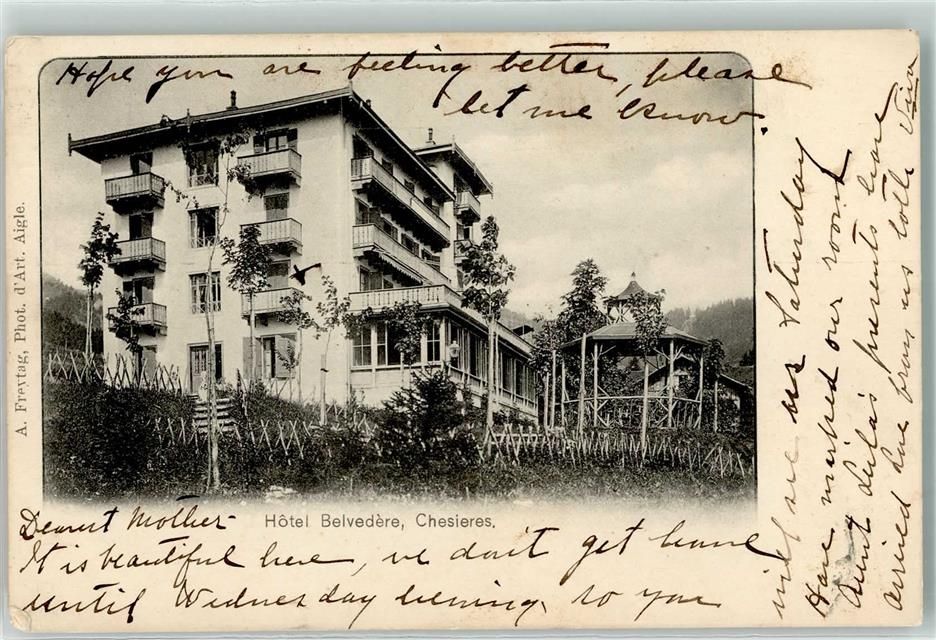 Hope you are feeling better, please
let me know.
A. Freytag, Phot. d'Art. Aigle.
Hôtel Belvedère, Chesieres.
Dearest Mother
It is beautiful here, we don't get home
until Wednesday evening, so you
will see us Saturday
Have marked our room
Aunt parents have
arrived from us